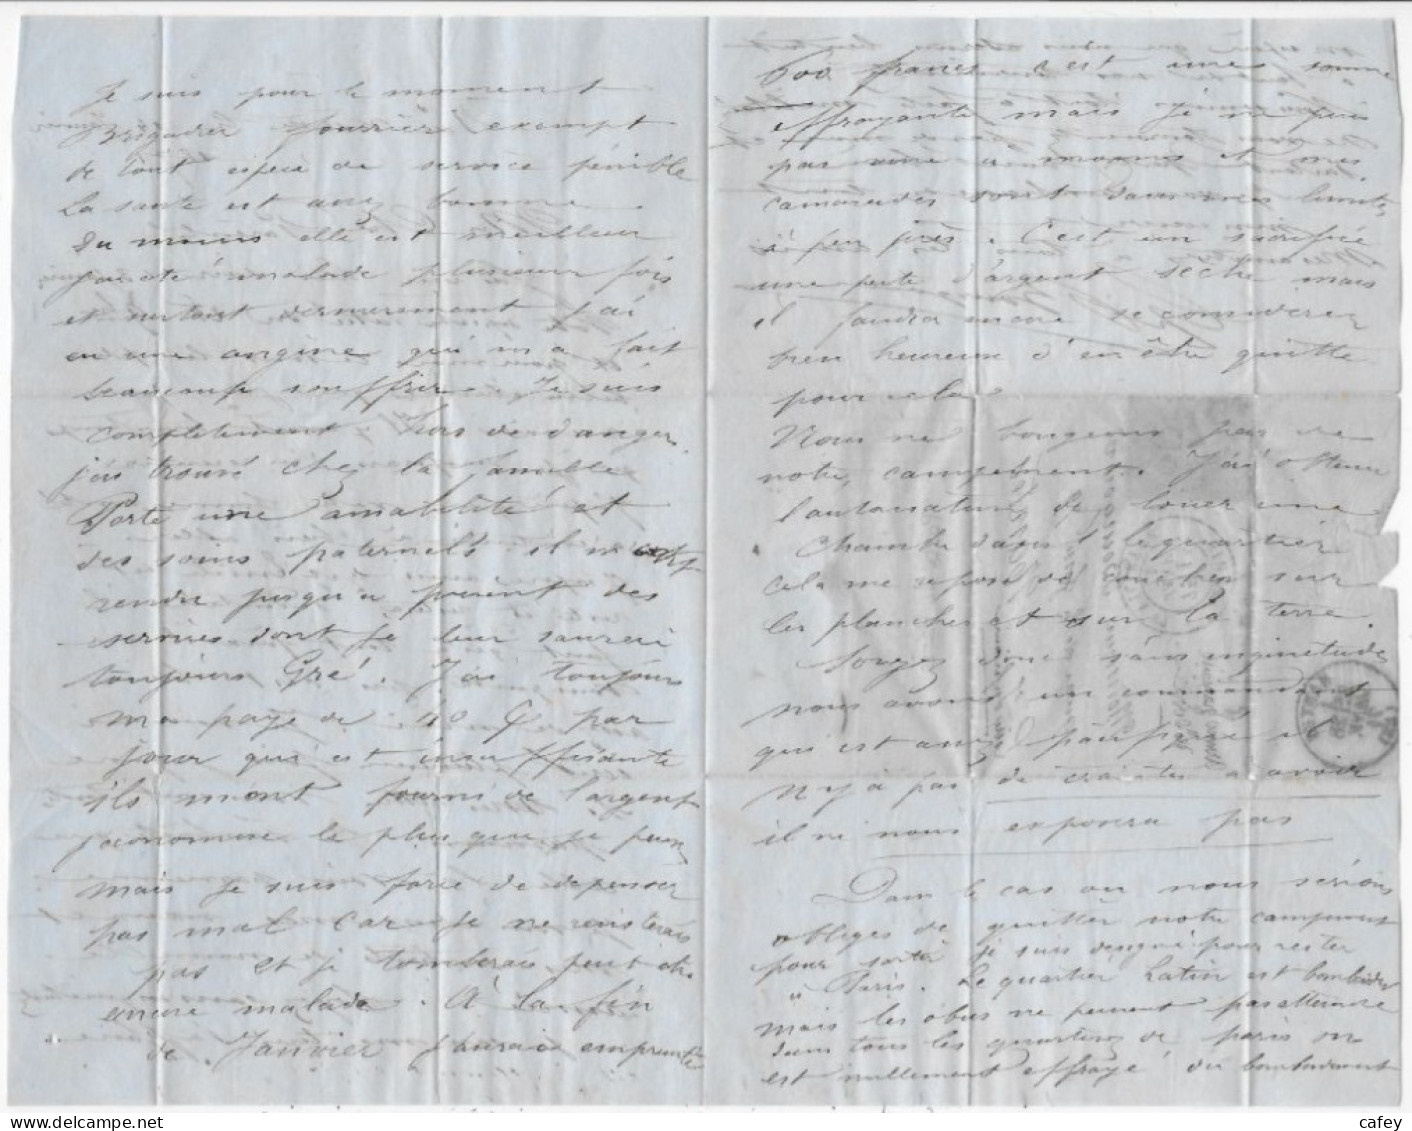 Je suis pour le moment
Brigadier fourrier exempt
de tout espece de service pénible
La santé est assez bonne
du moins elle est meilleur
j'ai été malade plusieur fois
et surtout dernierement j'ai
eu une angine qui m'a fait
beaucoup souffrir. Je suis
completement hors de danger
j'ai trouvé chez la famille
Porte une amabilité et
des soins paternels il m'ont
rendu jusqu'a present des
services dont je leur saurai
toujours Gré. J'ai toujours
ma paye de 40 par
jour qui est insuffisante
ils m'ont fourni de l'argent
j'économise le plus que je puis
mais je suis forcé de depenser
pas mal car je ne resisterais
pas et je tomberais peut etre
encore malade. À la fin
de Janvier j'aurais emprunté
600 francs c'est une somme
effrayante mais je ne puis
pas vivre a moins et mes
camarades sont dans mes limites
à peu près. C'est un sacrifice
une perte d'argent sèche mais
il faudra encore se considerer
bien heureux d'en être quitte
pour cela
Nous ne bougeons pas de
notre campement. J'ai obtenu
l'autorisation de louer une
chambre dans le quartier
cela me repose de coucher sur
les planches et sur la terre.
Soyez donc sans inquietudes
nous avons un commandant
qui est assez pacifique et
n'y a pas de craintes a avoir
il ne nous exposera pas
Dans le cas ou nous serions
obliges de quitter notre campement
pour sortir je suis designé pour rester
a Paris. Le quartier Latin est bombardé
mais les obus ne peuvent pas atteindre
dans tous les quartiers de paris on
est nullement effrayé du bombardement